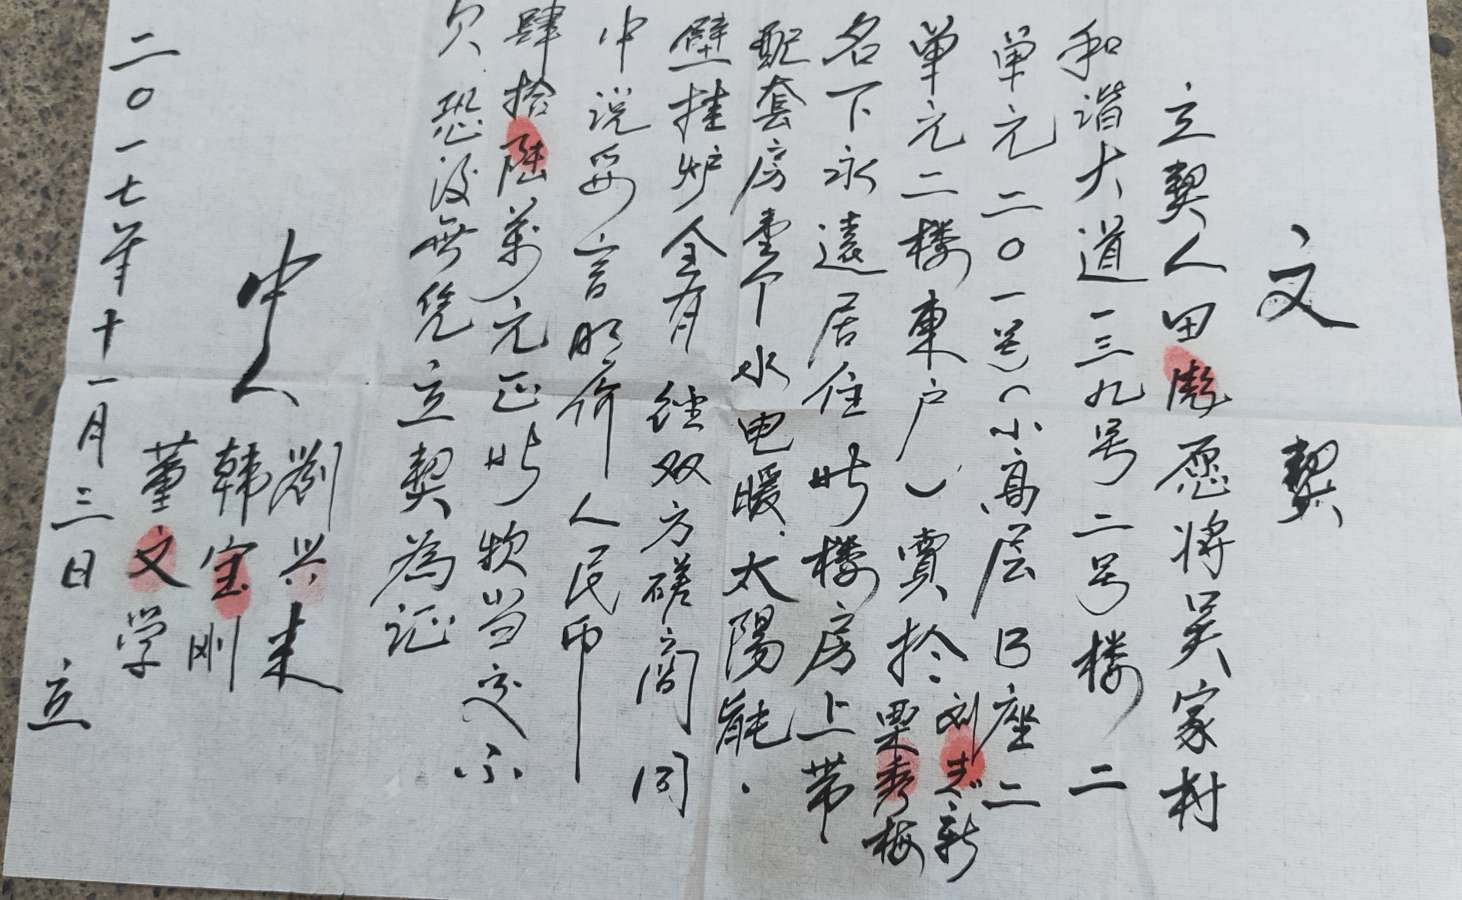 文契
立契人田彪愿将吴家村
和谐大道一三九号二号楼二
单元二〇一号(小高层B座二
单元二楼東户)賣於刘志新
栗秀梅
名下永遠居住此楼房上带
配套房壹个水电暖.太陽能.
壁挂炉全有经双方磋商同
中说妥言明价人民币
肆拾陆萬元正此款当交不
欠恐後無凭立契為证
中人
劉兴来
韩宝刚
董文学
二〇一七年十一月三日立